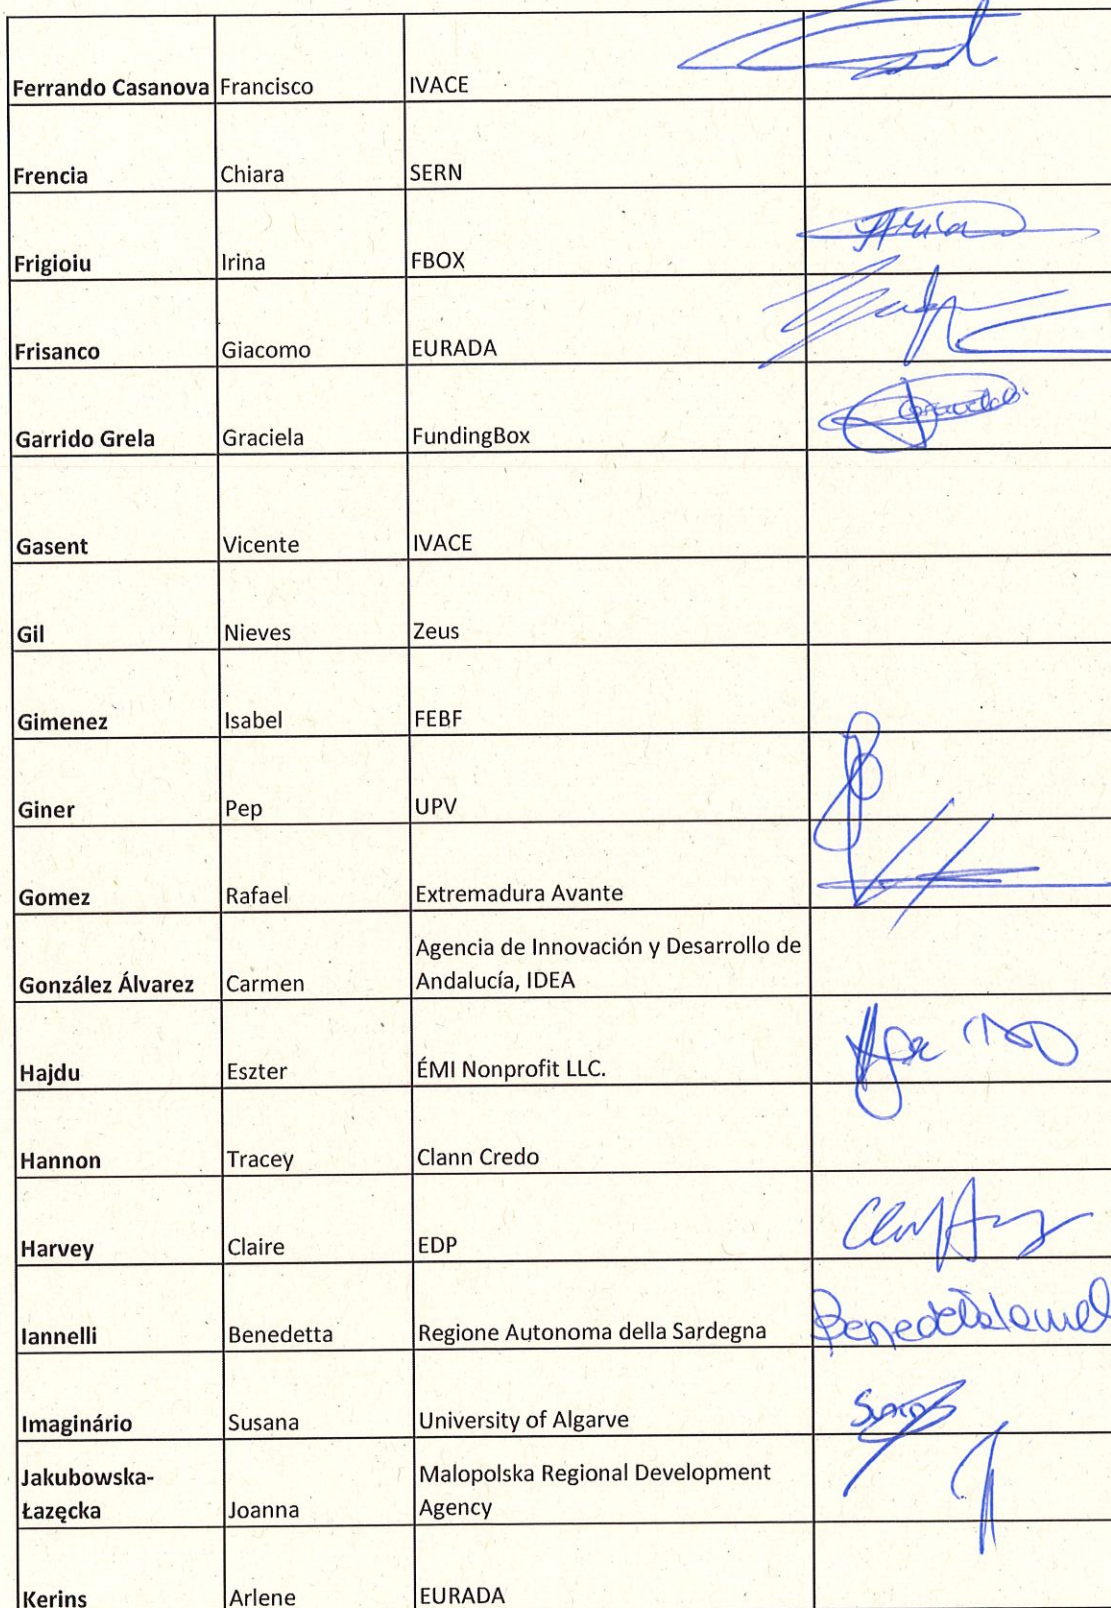 Ferrando Casanova Francisco IVACE
Frencia Chiara SERN
Frigioiu Irina FBOX
Frisanco Giacomo EURADA
Garrido Grela Graciela FundingBox
Gasent Vicente IVACE
Gil Nieves Zeus
Gimenez Isabel FEBF
Giner Pep UPV
Gomez Rafael Extremadura Avante
Agencia de Innovación y Desarrollo de
González Álvarez Carmen Andalucía, IDEA
Hajdu Eszter ÉMI Nonprofit LLC.
Hannon Tracey Clann Credo
Harvey Claire EDP
Iannelli Benedetta Regione Autonoma della Sardegna
Imaginário Susana University of Algarve
Jakubowska- Malopolska Regional Development
Łazęcka Joanna Agency
Kerins Arlene EURADA